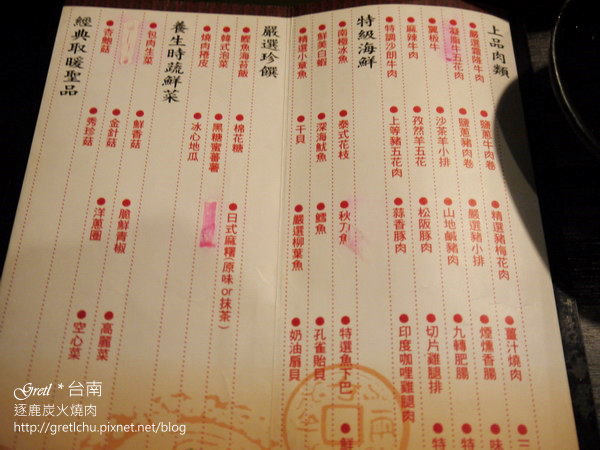 上品肉類
嚴選霜降牛肉
鹽蔥牛肉卷
精選豬梅花肉
薑汁燒肉
凝脂牛五花肉
鹽蔥豬肉卷
嚴選豬小排
煙燻香腸
翼板牛
沙茶羊小排
山地鹹豬肉
九轉肥腸
麻辣牛肉
孜然羊五花
松阪豚肉
切片雞腿排
特調沙朗牛肉
上等豬五花肉
蒜香豚肉
印度咖哩雞腿肉
特級海鮮
南極冰魚
泰式花枝
秋刀魚
特選魚下巴
鮮美白蝦
深海魷魚
鱈魚
孔雀貽貝
精選小章魚
干貝
嚴選柳葉魚
奶油扇貝
嚴選珍饌
鰹魚海苔飯
棉花糖
日式麻糬(原味or抹茶)
韓式泡菜
黑糖蜜蕃薯
燒肉捲皮
冰心地瓜
養生時蔬鮮菜
包肉生菜
鮮香菇
脆鮮青椒
高麗菜
金針菇
洋蔥圈
空心菜
杏鮑菇
秀珍菇
經典取暖聖品
Gretl * 台南
逐鹿炭火燒肉
http://gretlchu.pixnet.net/blog